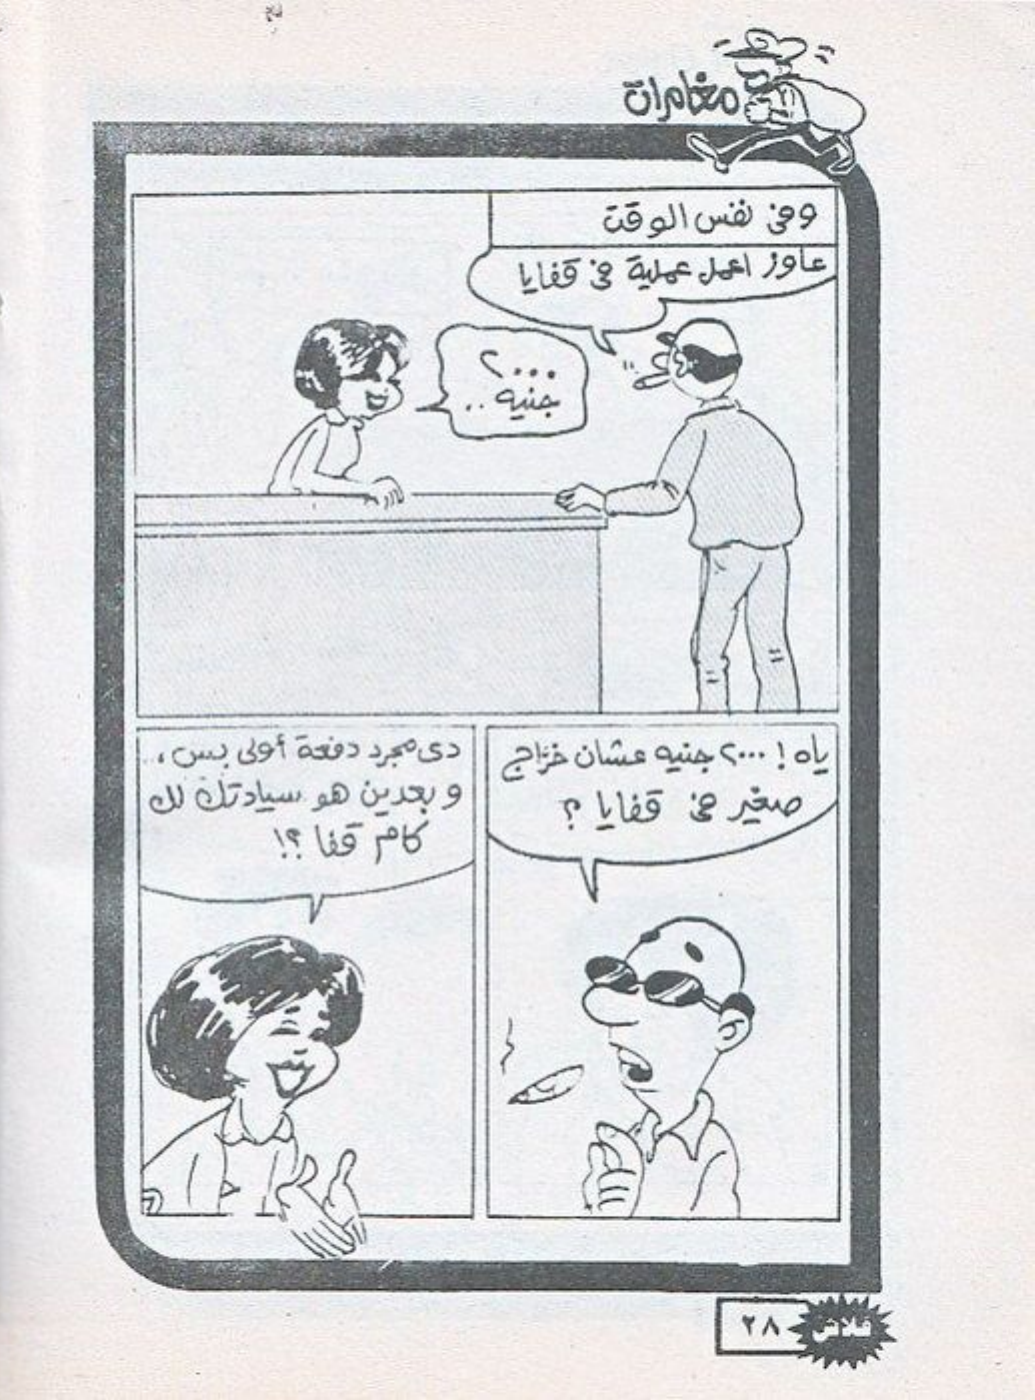 مغامرات
وفى نفس الوقت
عاوز اعمل عملية فى قفايا
٢٠٠٠
جنيه ..
ياه ! ٢٠٠٠ جنيه عشان خرّاج
صغير فى قفايا ؟
دى مجرد دفعة أولى بس ،
وبعدين هو سيادتك لك
كام قفا ؟!
فلاش
٢٨